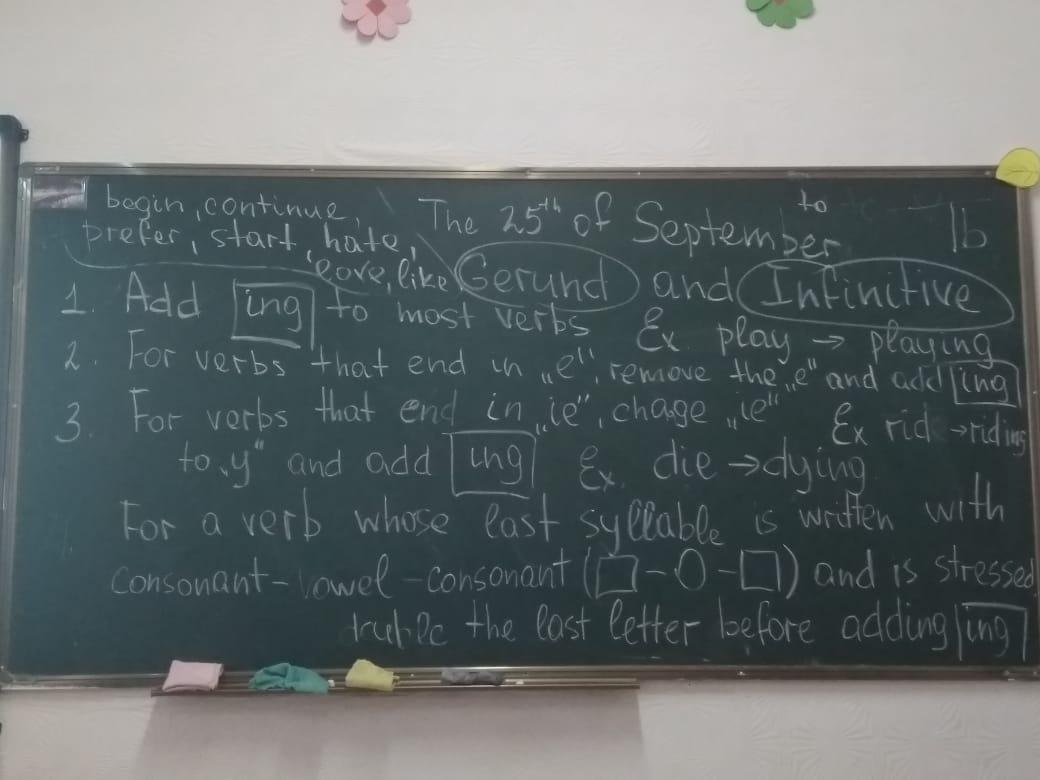 begin, continue,
prefer, start, hate,
love, like
The 25th of September
to
1b
Gerund and Infinitive
1. Add ing to most verbs Ex play → playing
2. For verbs that end in „e", remove the „e" and add ing
Ex ride → riding
3. For verbs that end in „ie", change „ie"
to „y" and add ing Ex. die → dying
For a verb whose last syllable is written with
consonant-vowel-consonant (□-O-□) and is stressed
the last letter before adding ing